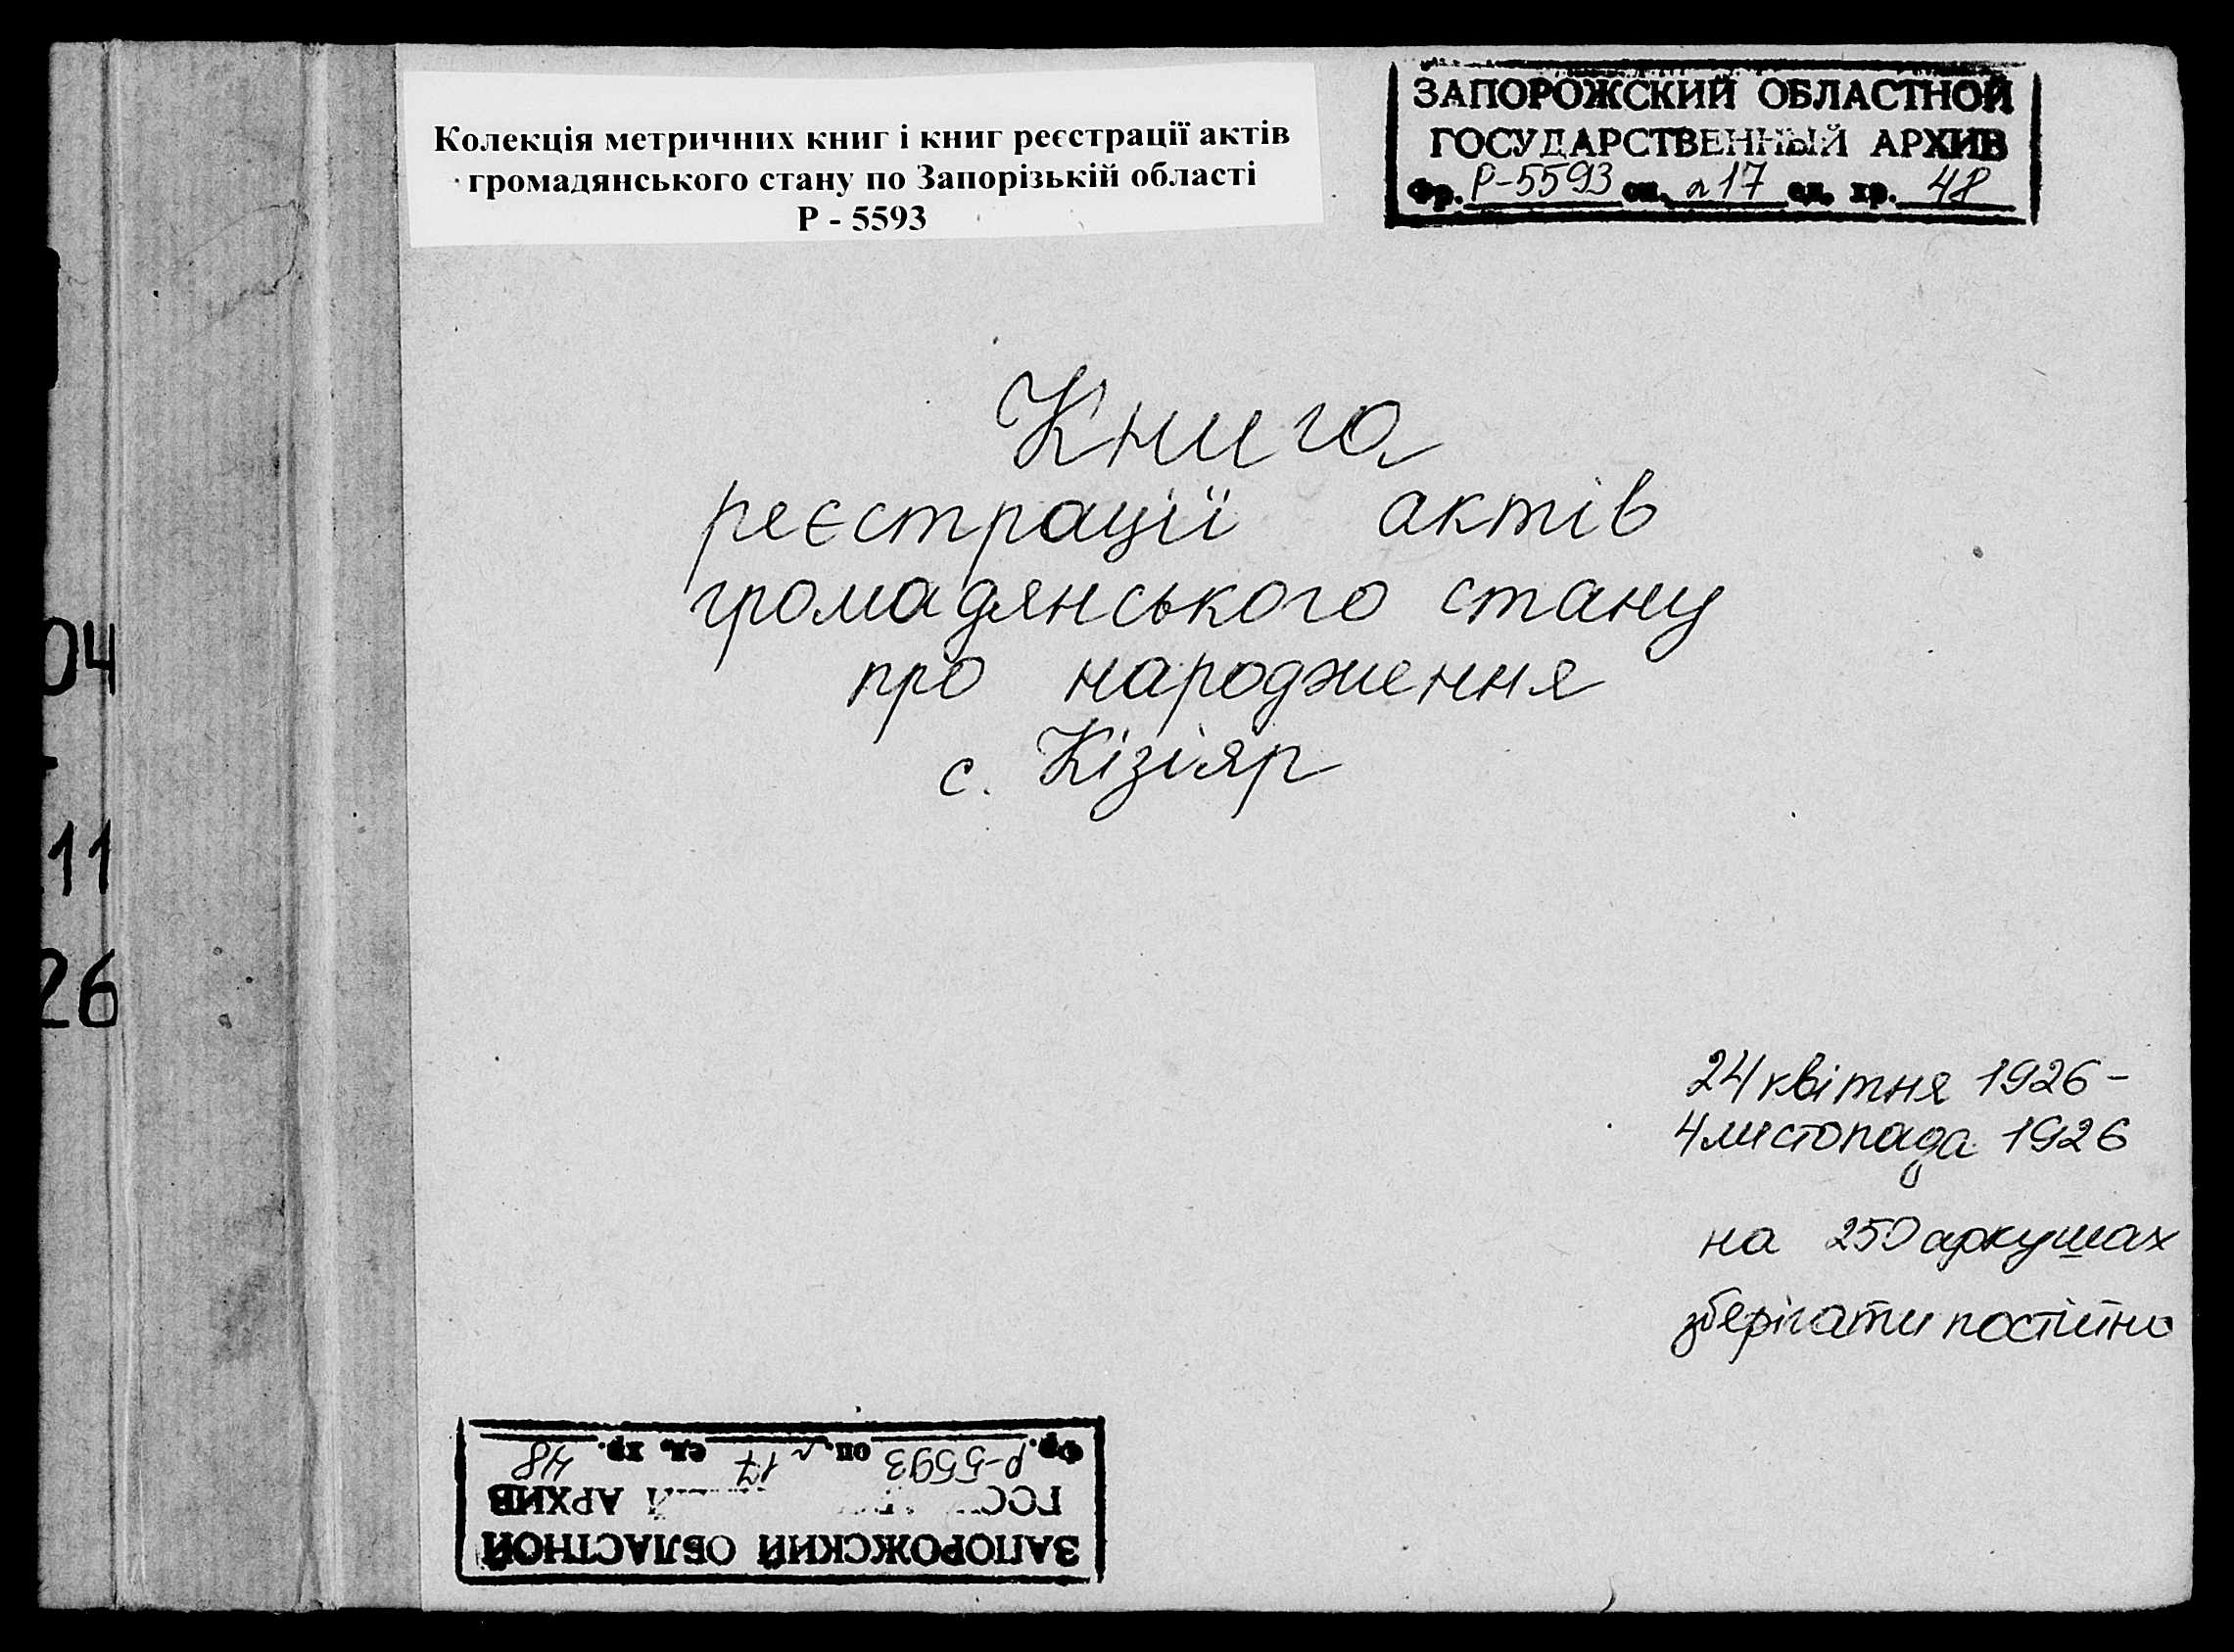 Колекція метричних книг і книг реєстрації актів
громадянського стану по Запорізькій області
Р - 5593
ЗАПОРОЖСКИЙ ОБЛАСТНОЙ
ГОСУДАРСТВЕННЫЙ АРХИВ
Фр. Р-5593 оп. л17 ед. хр. 48
Книга
реєстрації актів
громадянського стану
про народження
с. Кізіяр
04
-
11
26
24 квітня 1926 -
4 листопада 1926
на 250 аркушах
зберігати постійно
ЗАПОРОЖСКИЙ ОБЛАСТНОЙ
ГОС Й АРХИВ
Фр. Р-5593 оп. л 17 ед. хр. 48